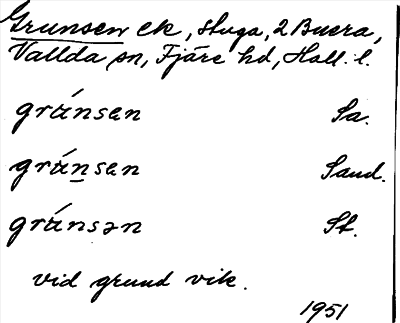 Grunsen ek, stuga, 2 Buera,
Vallda sn, Fjäre hd, Hall. l.
grúnsan Sa.
grúnsan Sand.
grúnsən St.
vid grund vik.
1951